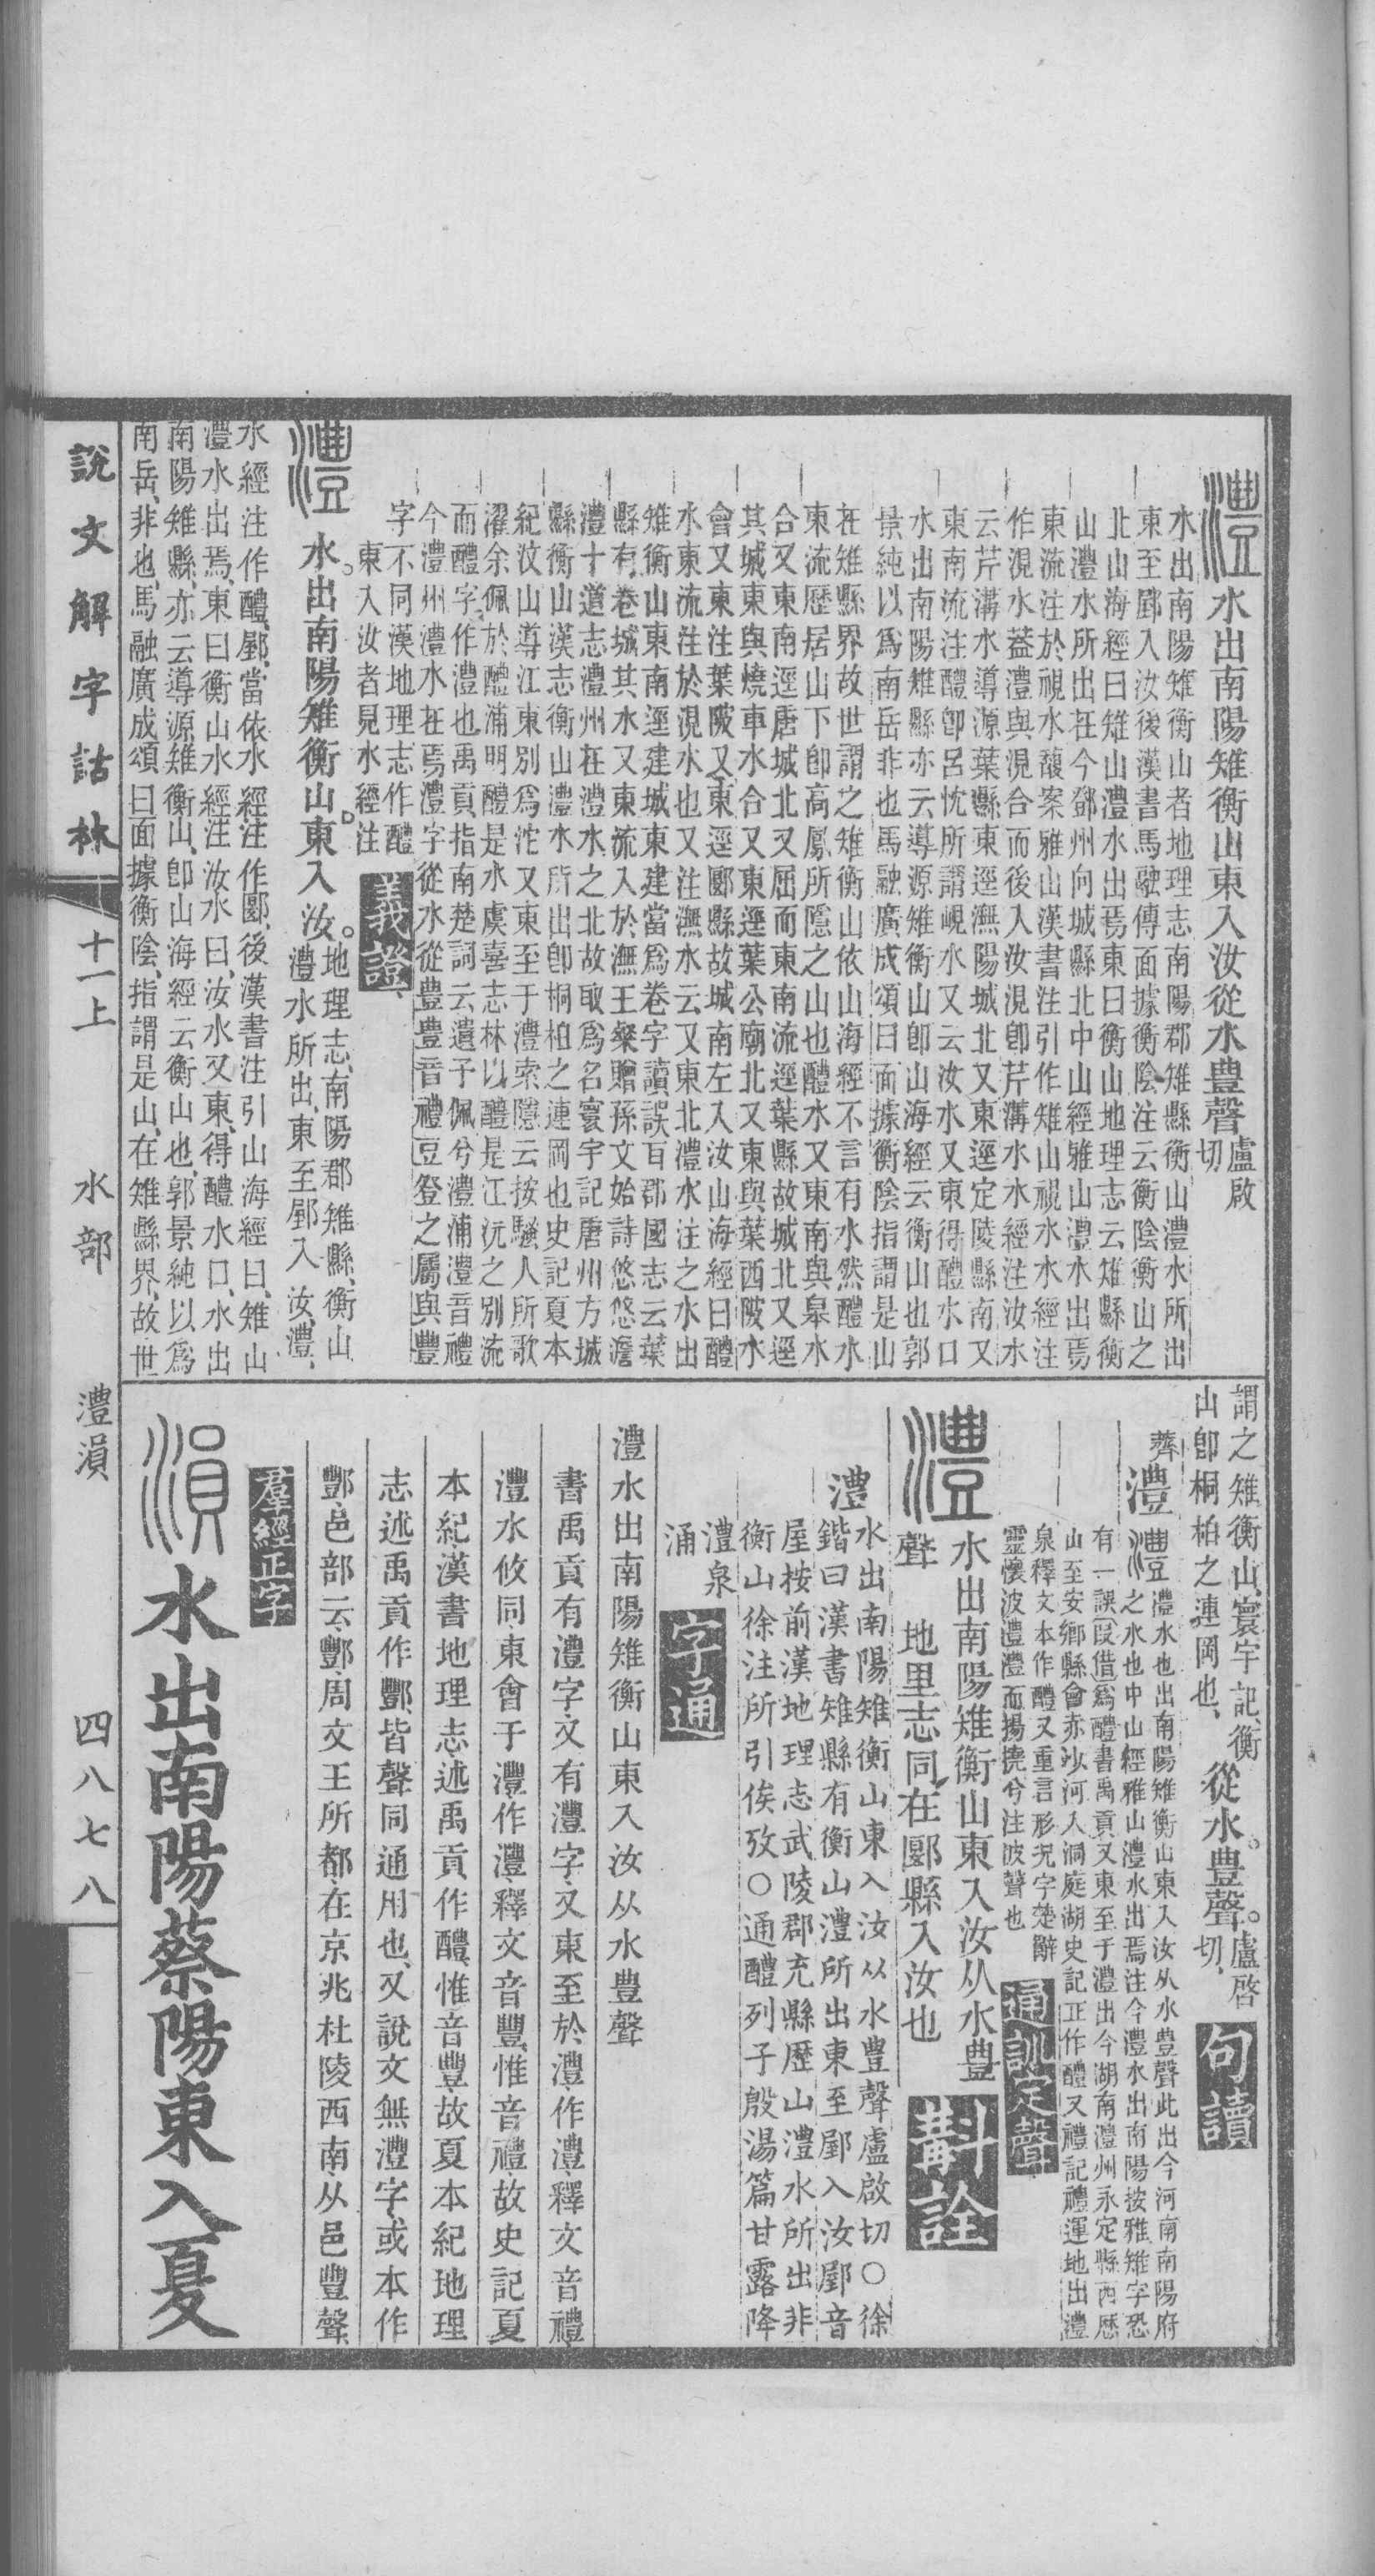 澧水出南陽雉衡山東入汝從水豊聲盧啟切
水出南陽雉衡山者地理志南陽郡雉縣衡山澧水所出
東至郾入汝後漢書馬融傳面據衡陰注云衡陰衡山之
北山海經曰雉山澧水出焉東曰衡山地理志云雉縣衡
山澧水所出在今鄧州向城縣北中山經雅山澧水出焉
東流注於視水馥案雅山漢書注引作雉山視水水經注
作涀水葢澧與涀合而後入汝涀卽芹溝水水經注汝水
云芹溝水導源葉縣東逕潕陽城北又東逕定陵縣南又
東南流注醴卽呂忱所謂峴水又云汝水又東得醴水口
水出南陽雉縣亦云導源雉衡山卽山海經云衡山也郭
景純以爲南岳非也馬融廣成頌曰面據衡陰指謂是山
在雉縣界故世謂之雉衡山依山海經不言有水然醴水
東流歷居山下卽高鳳所隱之山也醴水又東南與皋水
合又東南逕唐城北又屈而東南流逕葉縣故城北又逕
其城東與燒車水合又東逕葉公廟北又東與葉西陂水
會又東注葉陂又東逕郾縣故城南左入汝山海經曰醴
水東流注於涀水也又注潕水云又東北澧水注之水出
雉衡山東南逕建城東建當爲卷字讀誤百郡國志云葉
縣有卷城其水又東流入於潕王粲贈孫文始詩悠悠澹
澧十道志澧州在澧水之北故取爲名寰宇記唐州方城
縣衡山漢志衡山澧水所出卽桐柏之連岡也史記夏本
紀汶山導江東別爲沱又東至于澧索隱云按騷人所歌
濯余佩於醴浦明醴是水虞喜志林以醴是江沅之別流
而醴字作澧也禹貢指南楚詞云遺予佩兮澧浦澧音禮
今澧州澧水在焉澧字從水從豊豊音禮豆豋之屬與豐
字不同漢地理志作醴
東入汝者見水經注
義證
澧水。出南陽雉衡山。東入汝。地理志、南陽郡雉縣、衡山
澧水所出、東至郾入汝、澧、
水經注作醴、郾、當依水經注作郾、後漢書注引山海經曰、雉山
澧水出焉、東曰衡山水經注汝水曰、汝水又東、得醴水口、水出
南陽雉縣、亦云導源雉衡山、卽山海經云衡山也、郭景純以爲
南岳、非也、馬融廣成頌曰面據衡陰、指謂是山、在雉縣界、故世
謂之雉衡山、寰宇記、衡
山卽桐柏之連岡也、從水。豊聲。盧啓切、
句讀
薺澧澧澧水也出南陽雉衡山東入汝从水豊聲此出今河南南陽府
之水也中山經雅山澧水出焉注今澧水出南陽按雅雉字恐
有一誤〔叚借〕爲醴書禹貢又東至于澧出今湖南澧州永定縣西歷
山至安鄉縣會赤沙河入洞庭湖史記正作醴又禮記禮運地出澧
泉釋文本作醴又重言形況字楚辭
靈懷波澧澧而揚撓兮注波聲也
通訓定聲
澧水出南陽雉衡山東入汝从水豊
聲　地里志同在郾縣入汝也
斠詮
澧水出南陽雉衡山東入汝从水豊聲盧啟切〇徐
鍇曰漢書雉縣有衡山澧所出東至郾入汝郾音
屋按前漢地理志武陵郡充縣歷山澧水所出非
衡山徐注所引俟攷〇通醴列子殷湯篇甘露降
澧泉
涌
字通
澧水出南陽雉衡山東入汝从水豊聲
書禹貢有澧字又有灃字又東至於澧作澧釋文音禮
灃水攸同東會于灃作灃釋文音豐惟音禮故史記夏
本紀漢書地理志述禹貢作醴惟音豐故夏本紀地理
志述禹貢作酆皆聲同通用也又說文無灃字或本作
酆邑部云酆周文王所都在京兆杜陵西南从邑豐聲
羣經正字
溳水出南陽蔡陽東入夏
說文解字詁林　十一上　水部　澧溳　四八七八